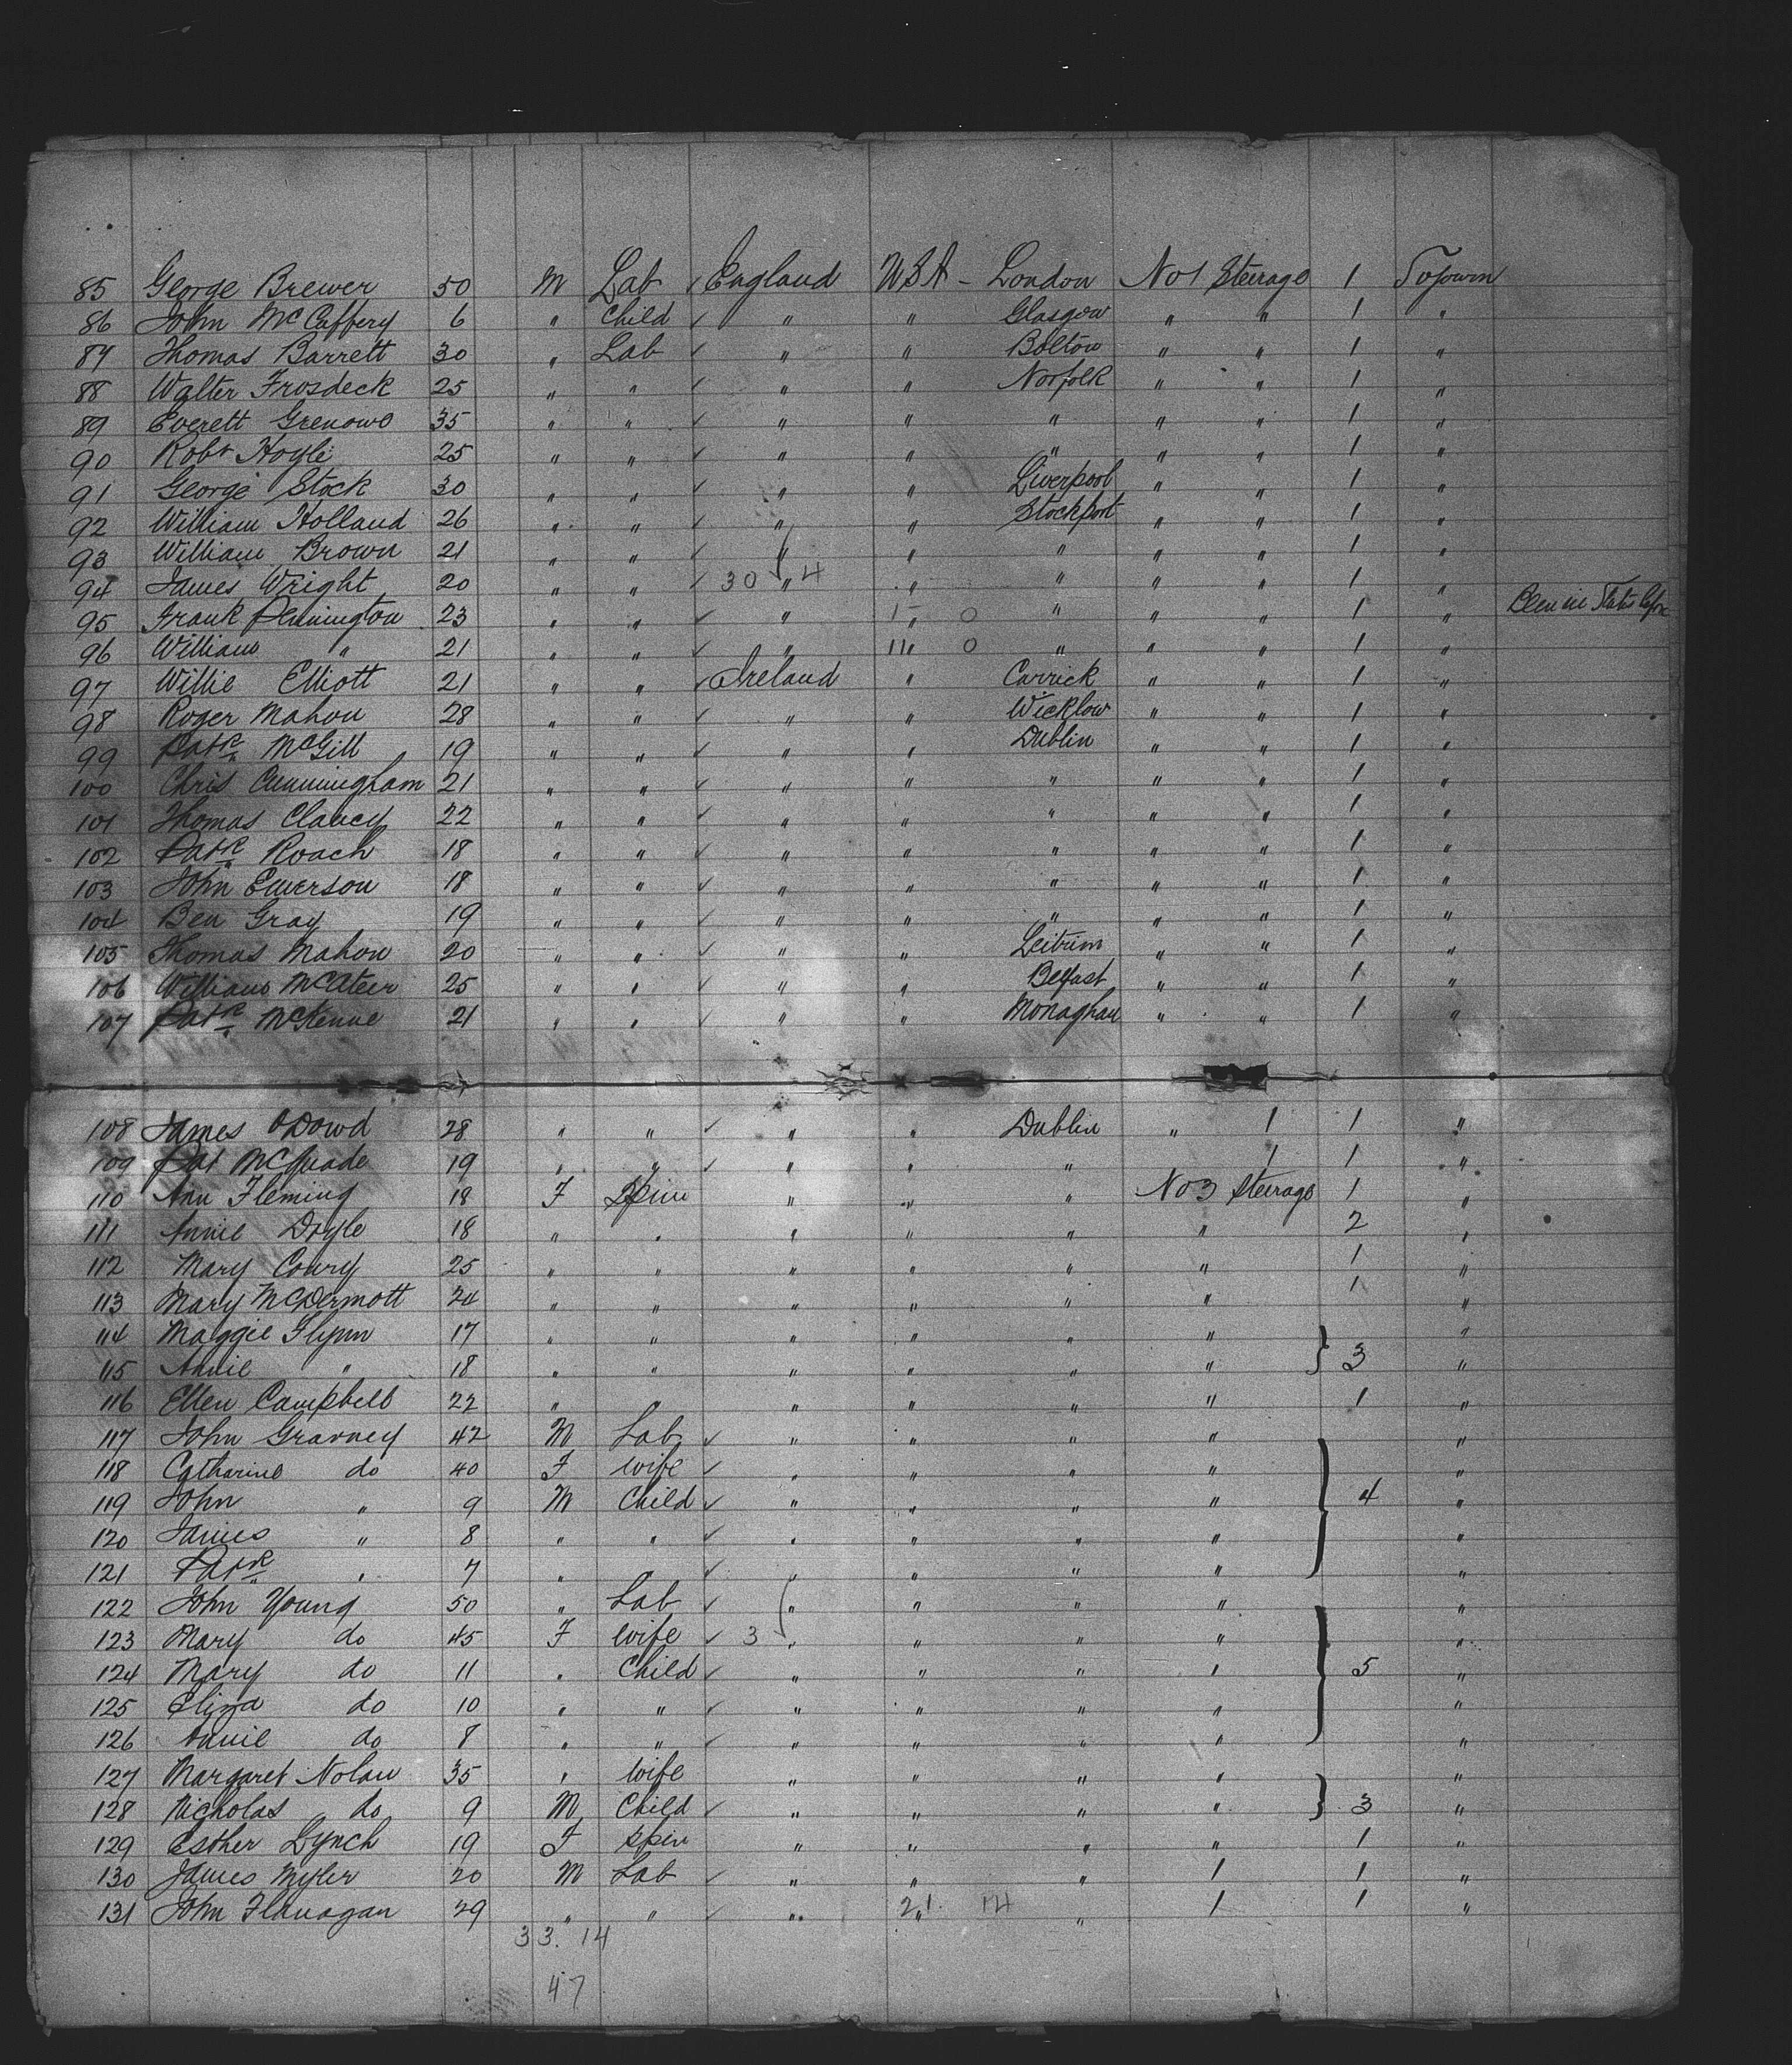 85 George Brewer 50 M Lab ✓ England USA - London No 1 Steerage 1 Sojourn
86 John McCaffery 6 " Child ✓ " " Glasgow " " 1 "
87 Thomas Barrett 30 " Lab ✓ " " Bolton " " 1 "
88 Walter Frosdeck 25 " " ✓ " " Norfolk " " 1 "
89 Everett Grenowo 35 " " ✓ " " " " " 1 "
90 Robt Hoyle 25 " " ✓ " " " " " 1 "
91 George Stock 30 " " ✓ " " Liverpool " " 1 "
92 William Holland 26 " " ✓ " " Stockport " " 1 "
93 William Brown 21 " " ✓ " " " " " 1 "
94 James Wright 20 " " ✓ 30 " 4 " " " " 1 "
95 Frank Pennington 23 " " ✓ " 1 " 0 " " " 1 " Been in States before
96 William " 21 " " ✓ " 11 " 0 " " " 1 "
97 Willie Elliott 21 " " ✓ Ireland " Carrick " " 1 "
98 Roger Mahon 28 " " ✓ " " Wicklow " " 1 "
99 Patk McGill 19 " " ✓ " " Dublin " " 1 "
100 Chris Cunningham 21 " " ✓ " " " " " 1 "
101 Thomas Clancy 22 " " ✓ " " " " " 1 "
102 Patk Roach 18 " " ✓ " " " " " 1 "
103 John Emerson 18 " " ✓ " " " " " 1 "
104 Ben Gray 19 " " ✓ " " " " " 1 "
105 Thomas Mahon 20 " " ✓ " " Leitrim " " 1 "
106 William McAteer 25 " " ✓ " " Belfast " " 1 "
107 Patk McKenne 21 " " ✓ " " Monaghan " " 1 "
108 James ODowd 28 " " ✓ " " Dublin " 1 1 "
109 Pat McQuade 19 " " ✓ " " " 1 1 "
110 Ann Fleming 18 F Spin " " " No 3 Steerage 1 "
111 Annie Doyle 18 " " " " " " 2 "
112 Mary Conry 25 " " " " " " 1 "
113 Mary McDermott 24 " " " " " " 1 "
114 Maggie Flynn 17 " " " " " " "
115 Annie " 18 " " " " " " } 3 "
116 Ellen Campbell 22 " " " " " " 1 "
117 John Gravney 42 M Lab ✓ " " " " "
118 Catharine do 40 F wife ✓ " " " " "
119 John " 9 M Child ✓ " " " " } 4 "
120 James " 8 " " ✓ " " " " "
121 Patk " 7 " ✓ " " " " "
122 John Young 50 " Lab ✓ " " " " "
123 Mary do 45 F wife ✓ 3 " " " " "
124 Mary do 11 " Child ✓ " " " " } 5 "
125 Eliza do 10 " " ✓ " " " " "
126 Annie do 8 " " ✓ " " " " "
127 Margaret Nolan 35 " wife " " " " "
128 Nicholas do 9 M Child ✓ " " " " } 3 "
129 Esther Lynch 19 F Spin " " " " 1 "
130 James Myler 20 M Lab ✓ " " " 1 1 "
131 John Flanagan 29 " " ✓ " 21 " 14 " 1 1 "
33. 14
47